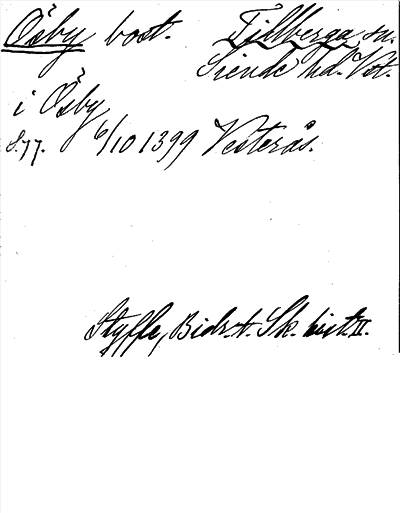 Ösby bost. Tillberga sn.
Siende hd. Vst.
i Ösby
s. 77. 6/10 1399 Vesterås.
Styffe, Bidr. t. Sk. hist. II.